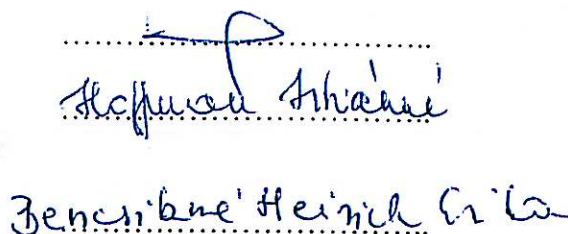 Hoffman Istvánné
Bencsikné Heinrich Erika